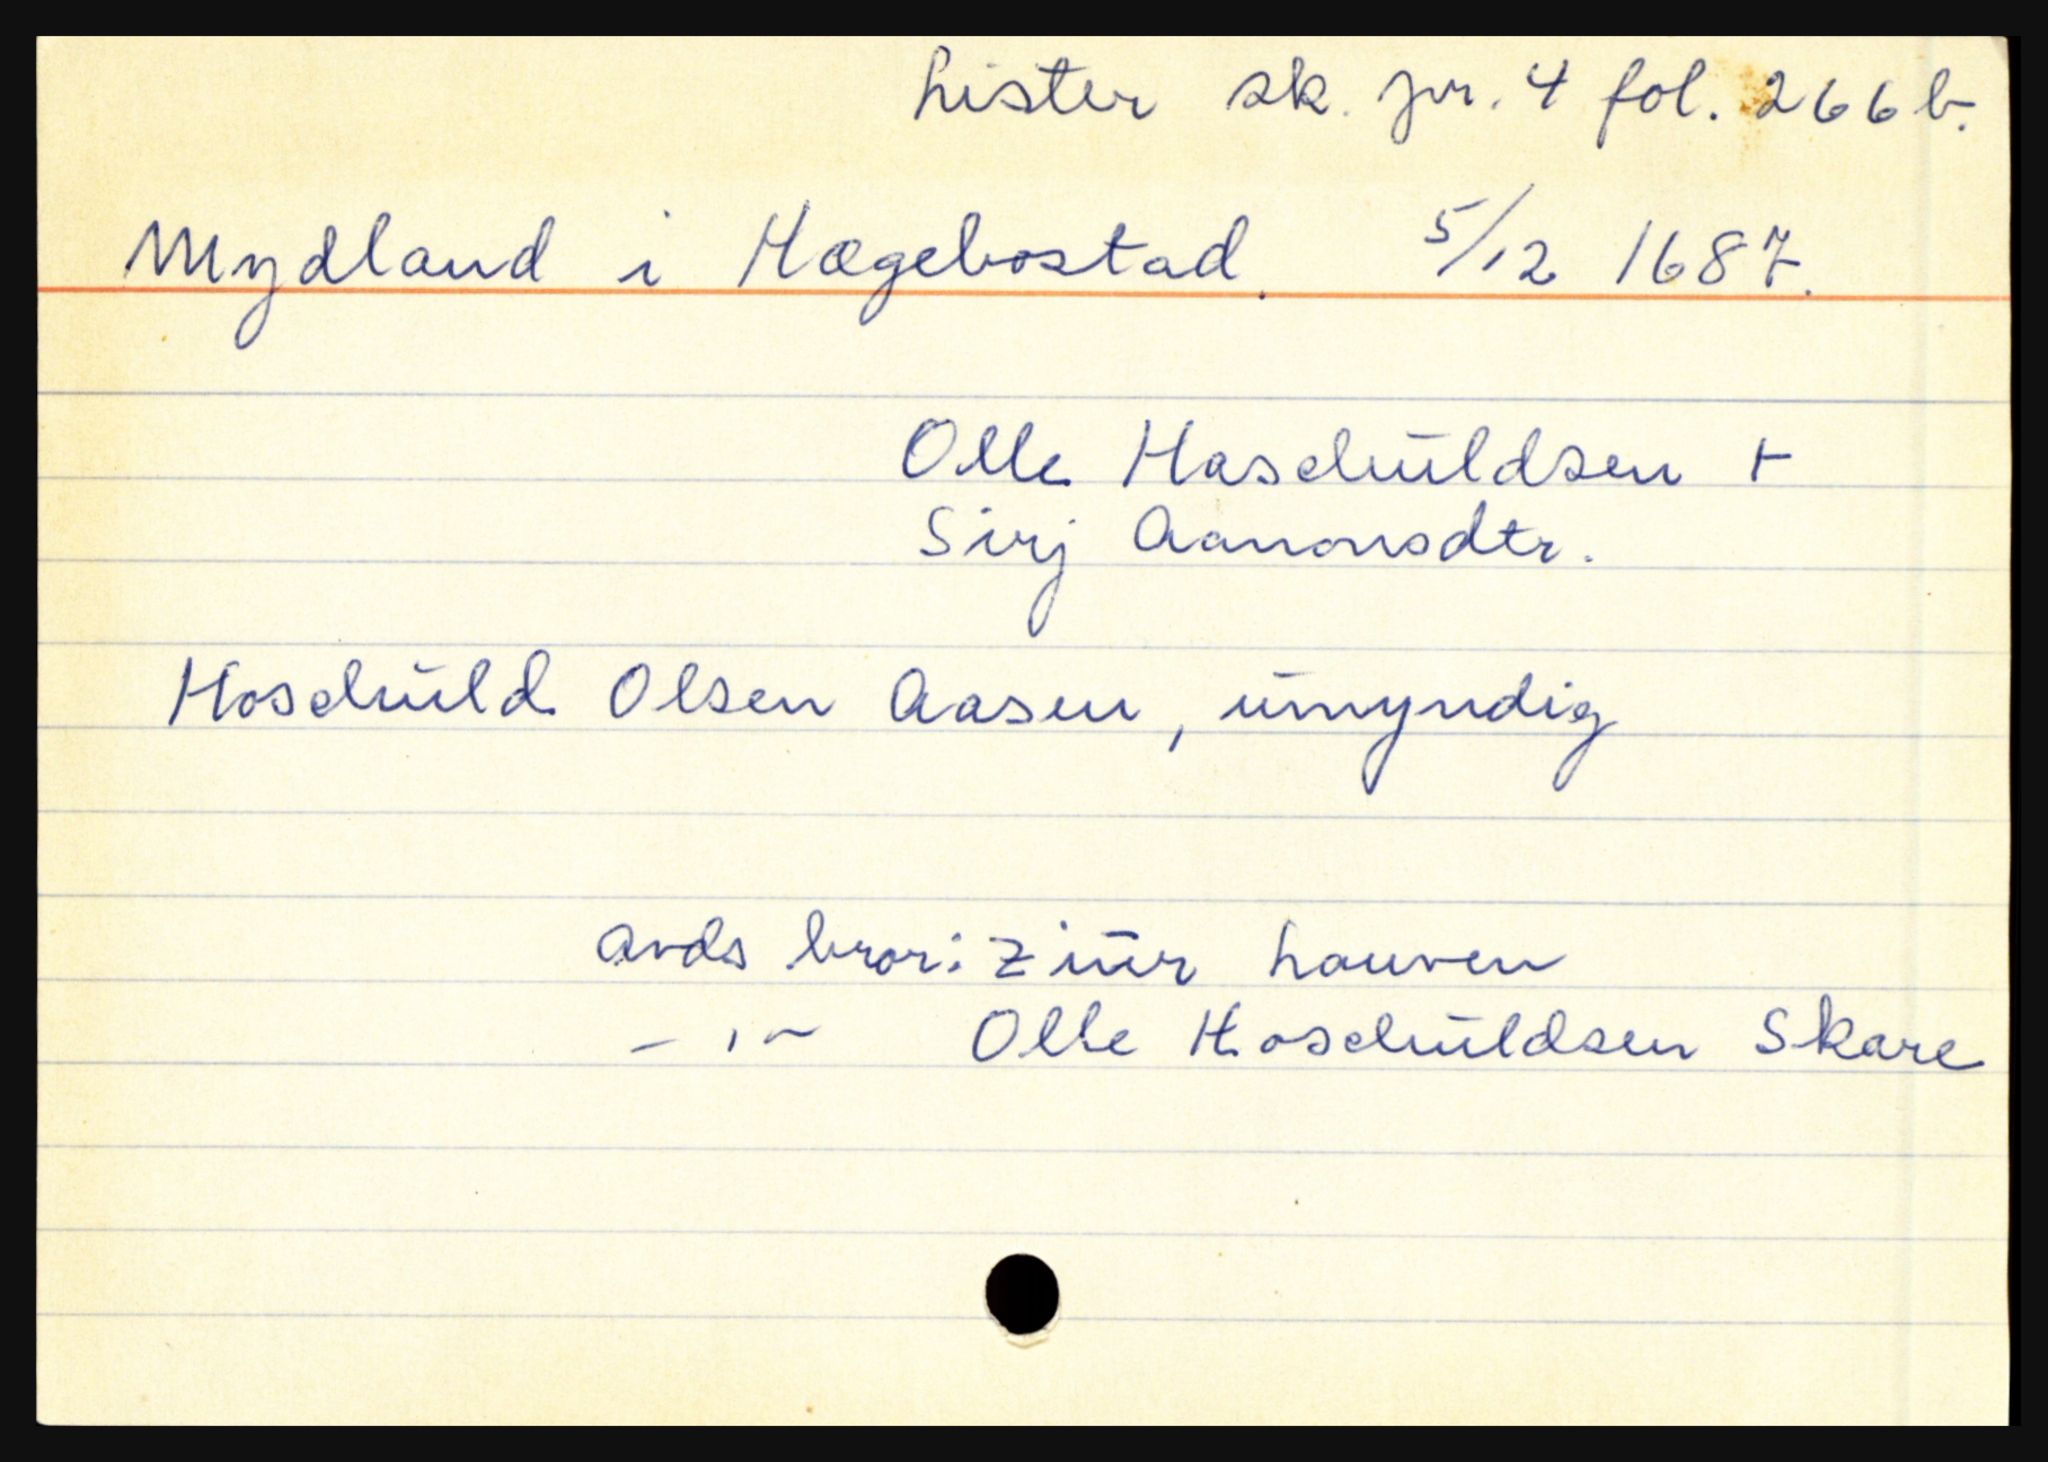 Lister sk. pr. 4 fol. 266 b.
Mydland i Hægebostad. 5/12 1687.
Olle Haschuldsen +
Sirj Aanonsdtr.
Hoschuld Olsen Aasen, umyndig
avds bror: Ziur Lauven
- " - Olle Hoschuldsen Skare